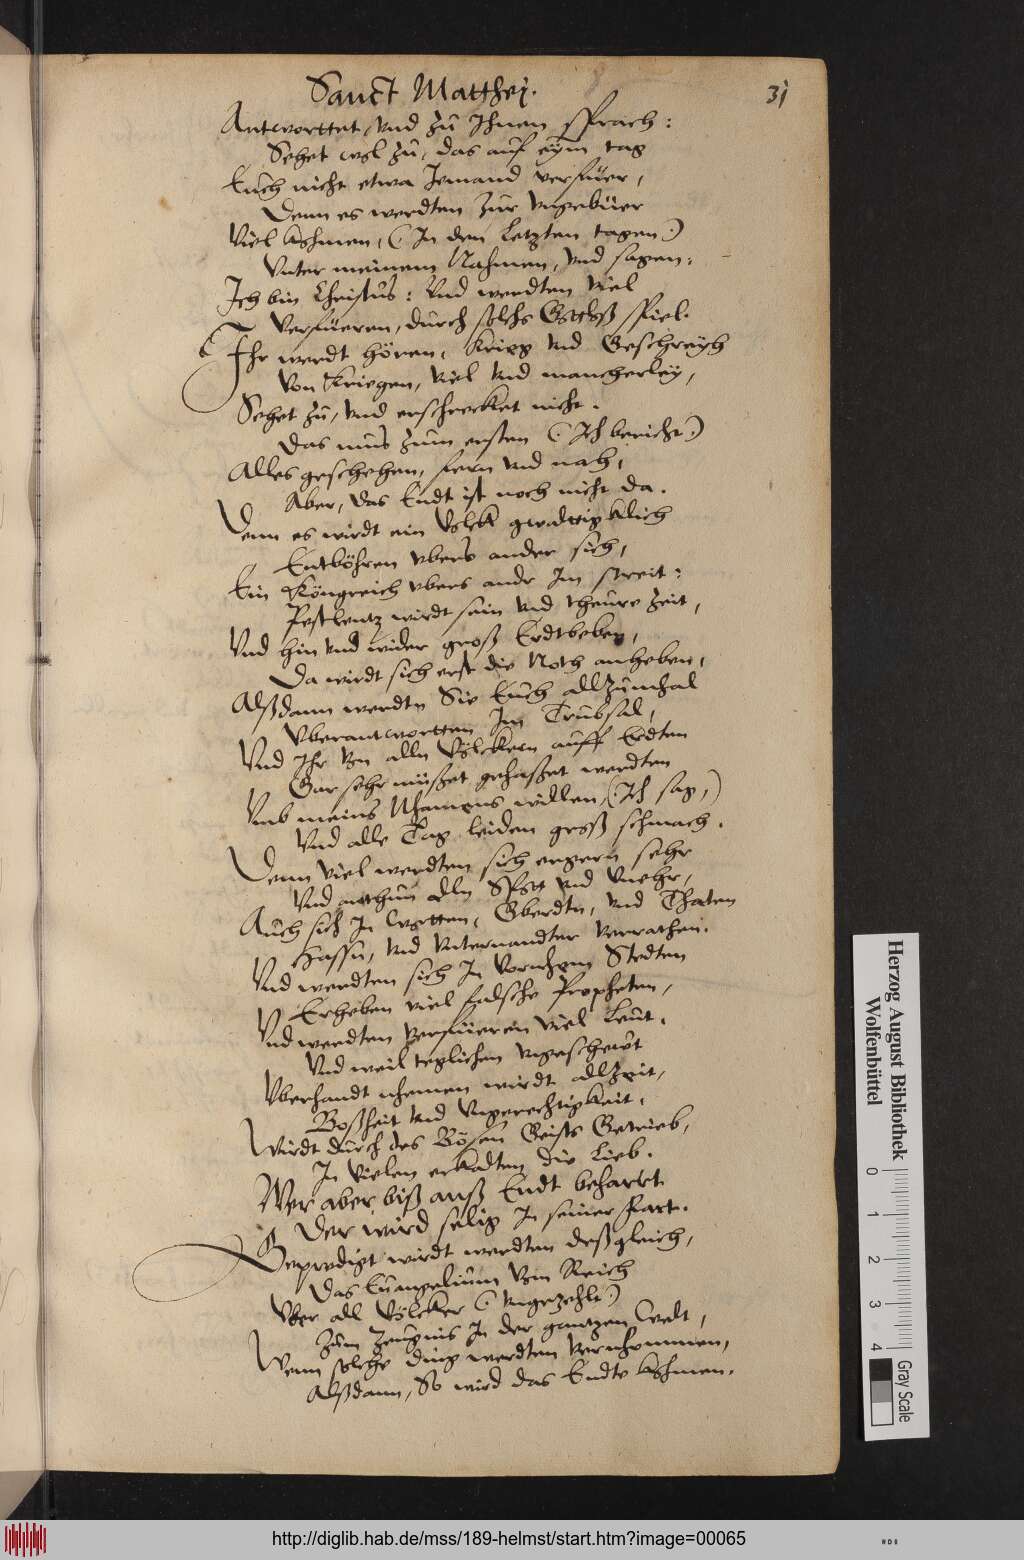 Sanct Matthej.
31
Antworttet, vnd zu Ihnen sprach:
Sehet wol zu, das auf eÿm tag
Euch nicht etwa Jemand verfüer,
Denn es werdten zur vngebüer
Viel khomen, (In den Letzten tagen)
Vnter meinem Nahmen, vnd sagen:
Ich bin Christus: Vnd werdten viel
Verfüeren, durch solchs Gottloß spiel.
Ihr werdt hören, Krieg vnd Geschreÿh
Von Kriegen, viel vnd mancherleÿ,
Sehet zu, vnd erschrecket nicht.
Das mus zum ersten (Ich bericht)
Alles geschehen, fern vnd nah,
Aber, das Endt ist noch nicht da.
Denn es wirdt ein Volck gwaltigklich
Entböhren vbers ander sich,
Ein Köngreich vbers andr Im streit:
Pestlentz wirdt sein vnd theure zeit,
Vnd hin vnd wider groß Erdtbeben,
Da wirdt sich erst die Noth anheben,
Alßdann werdtn Sie Euch allzumhal
Vberantwortten Im Trübsal,
Vnd Ihr von alln Völckern auff Erdten
Gar sehr müßet gehaßet werdten
Vmb meins Nhamens willen, (Ich sag,)
Vnd alle Tag leiden groß schmach.
Denn viel werdten sich ergern sehr
Vnd anthun alln Spott vnd Vnehr,
Auch sich In Wortten, Gberdtn, vnd Thaten
Hassn, vnd Vnternandter verrathen.
Vnd werdten sich In Vornhem Stedten
Erheben viel falsche Propheten,
Vnd werdten verfüeren viel Leut.
Vnd weil teglichen vngescheut
Vberhandt nhemen wirdt allzeit,
Boßheit vnd Vngerechtigkeit,
Wirdt durch des Bösen Geists Getrieb,
In Vielen erkalten die Lieb.
Wer aber biß anß Endt beharrt
Der wird selig In seiner Fart.
Gepredigt wirdt werdten deßgleich,
Das Euangelium vom Reich
Vber all Völcker (vngezehlt)
Zum Zeugnis In der gantzen Welt,
Wenn solche ding werdten vernhommen,
Alßdann, So wird das Endte khomen.
Herzog August Bibliothek
Wolfenbüttel
0 1 2 3 4
Gray Scale
http://diglib.hab.de/mss/189-helmst/start.htm?image=00065